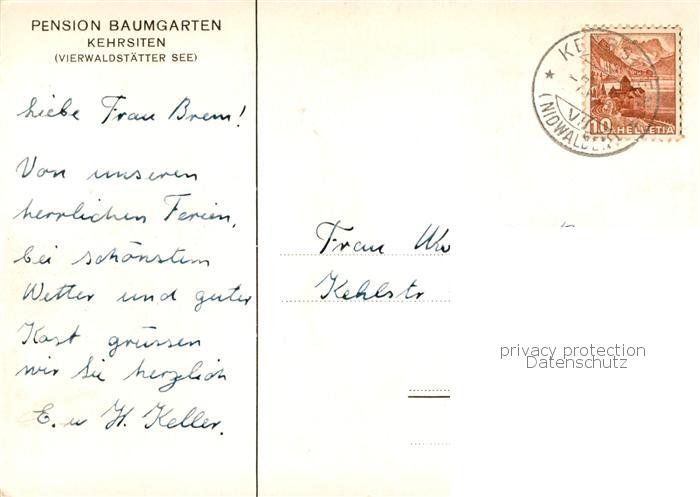 PENSION BAUMGARTEN
KEHRSITEN
(VIERWALDSTÄTTER SEE)
Liebe Frau Brem!
Von unseren
herrlichen Ferien,
bei schönstem
Wetter und guter
Kost grüssen
wir Sie herzlich
E. u H. Keller.
(NIDWALDEN)
10 HELVETIA
Frau
Kehlstr
privacy protection
Datenschutz